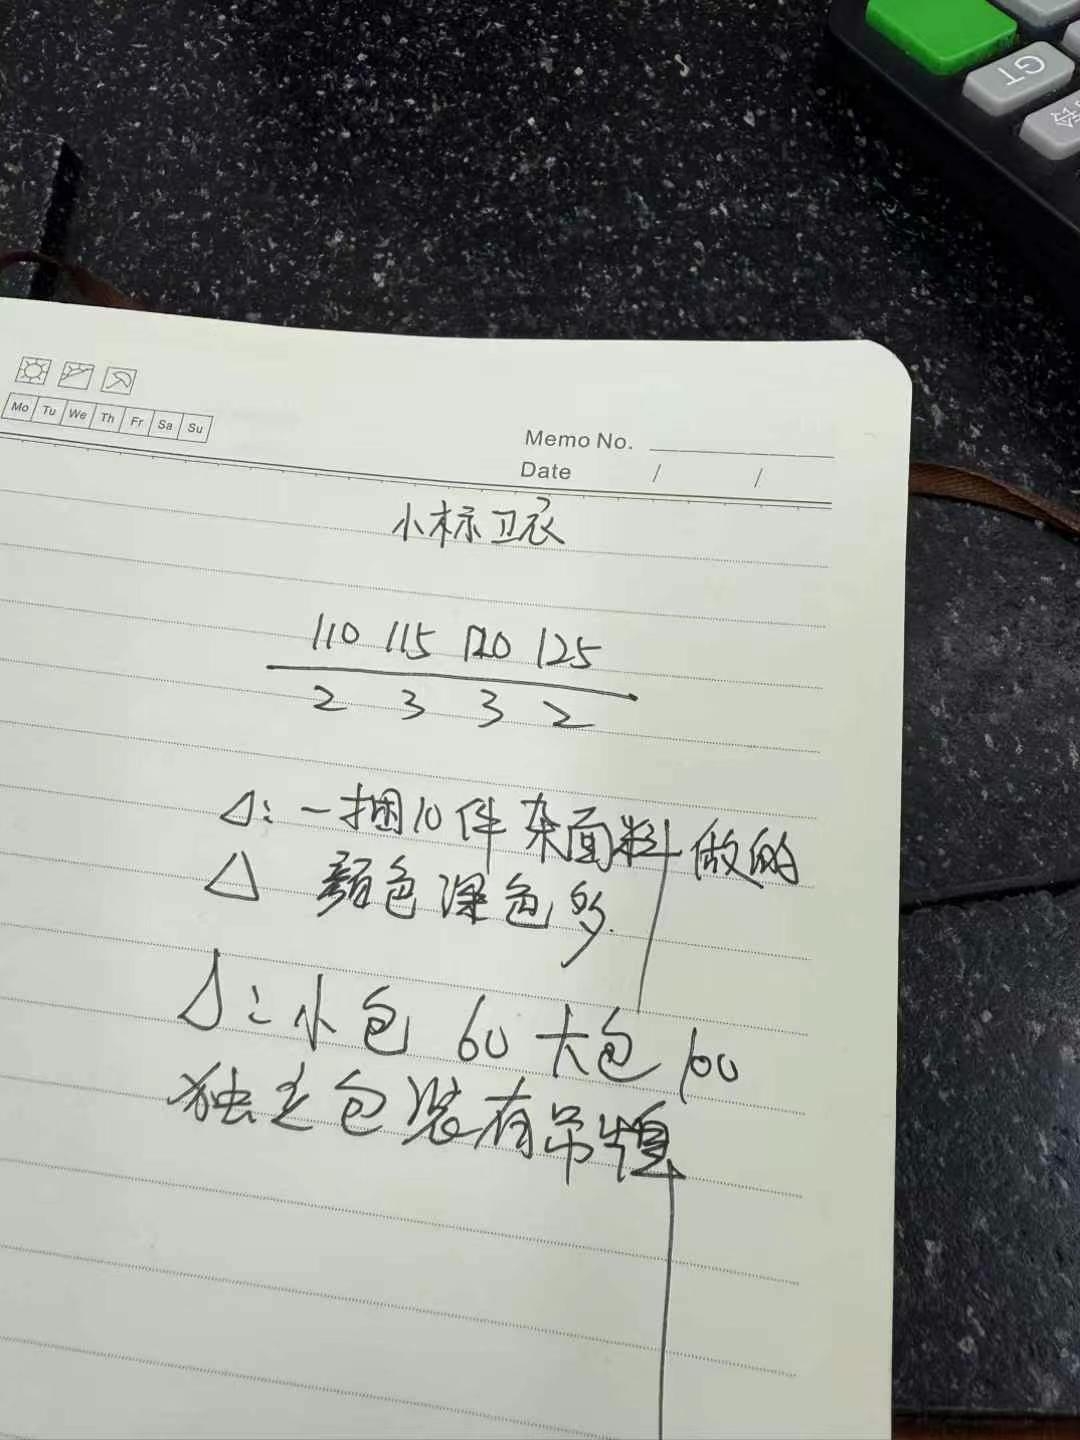 GT
Mo Tu We Th Fr Sa Su
Memo No.
Date / /
小标卫衣
110 115 120 125
2 3 3 2
△:一捆10件杂面料做的
△ 颜色深色多
△:小包 60 大包 100
独立包装有吊牌